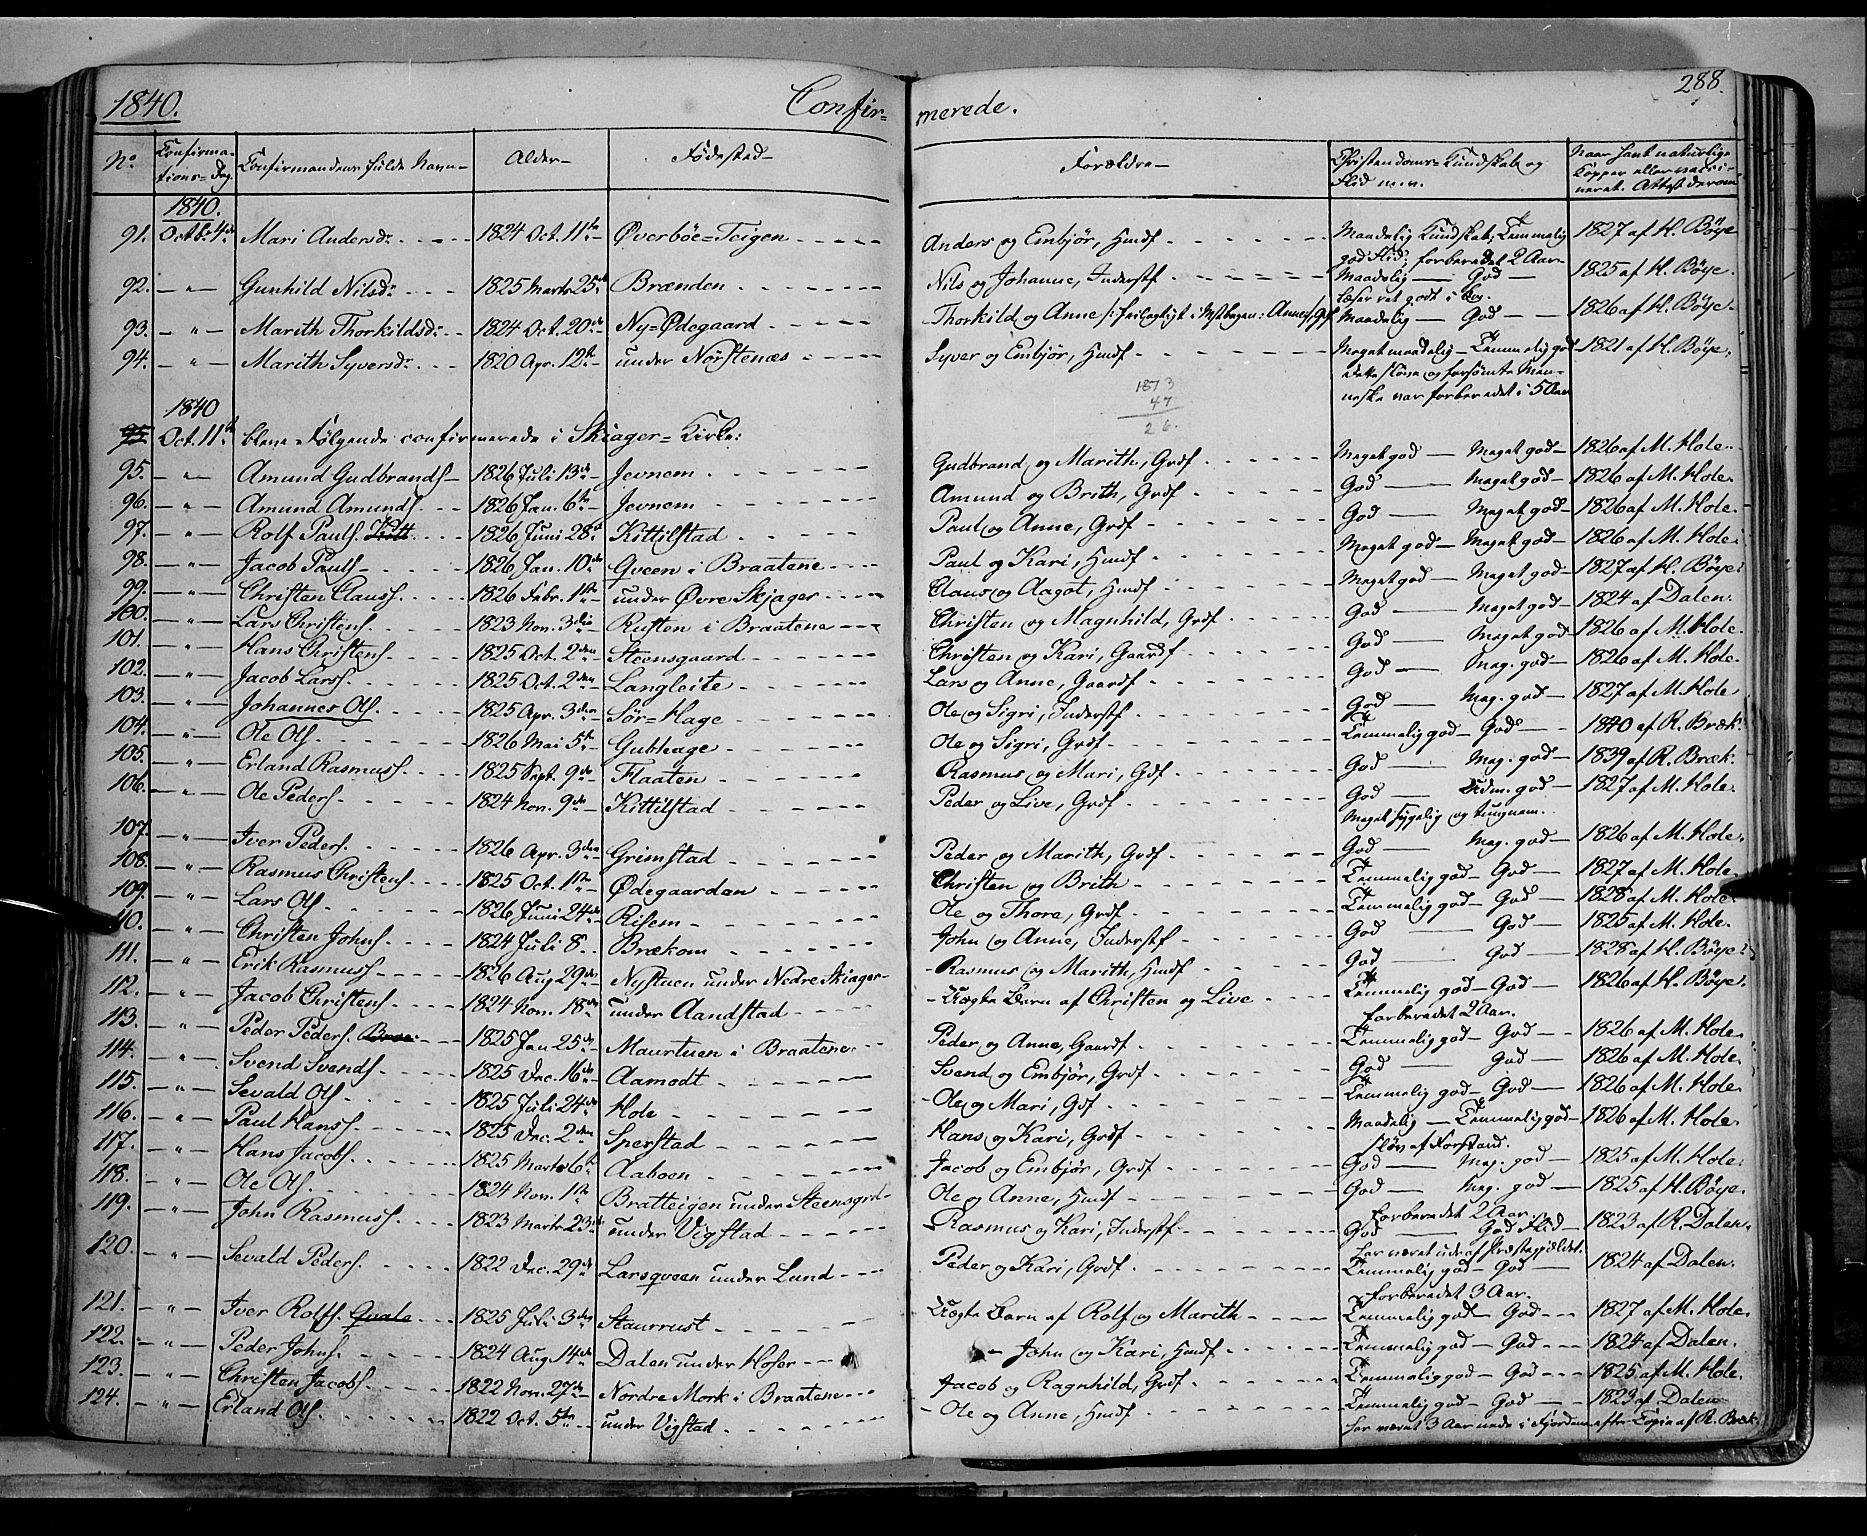 1840. Confirmerede. 288.
No Confirmations-Dag Confirmandens fulde Navn Alder Fødested Forældre Christendoms-Kundskab og Flid m.v. Naar havt naturlige Kopper eller vaccineret. Attest derom
1840.
91. Octb. 4de Mari Andersdr 1824 Oct. 11te Øverböe=Teigen Anders og Embjør, Hmdf Maadelig Kundskab; Temmelig god Flid; forberedet 2 Aar 1827 af H. Böye
92. " Gunhild Nilsdr 1825 Marts 25de Brænden Nils og Johanne, Inderstf Maadelig God læser ret godt i Bog. 1825 af H. Böye.
93. " Marith Thorkildsdr 1824 Oct. 20de Ny=Ødegaard Thorkild og Anne Maadelig God 1826 af H. Böye.
94. " Marith Syversdr 1820 Apr. 12te under Nörstenæs Syver og Embjør, Hmdf Meget maadelig Temmelig god dette sløve og forsømte Menneske var forberedet i 5 Aar 1821 af H. Böye.
1873
47
26.
1840
95 Oct. 11te bleve Følgende confirmerede i Skiager=Kirke:
95. " Amund Gudbrands. 1826 Juli 13de Jevnem Gudbrand og Marith, Grdf Meget god Meget god 1826 af M. Hole.
96. " Amund Amunds. 1826 Jan. 6te Jevnem Amund og Brith, Grdf God Meget god 1826 af M. Hole.
97. " Rolf Pauls. Kitt 1826 Juni 28de Kittilstad Paul og Anne, Grdf God Meget god 1826 af M. Hole.
98. " Jacob Pauls. 1826 Jan. 10de Qveen i Braatene Paul og Kari, Hmdf Meget god Meget god 1826 af M. Hole.
99. " Christen Clauss. 1826 Febr. 1ste under Øvre Skjager Claus og Aagot, Hmdf Meget god Meget god 1827 af H. Böye.
100. " Lars Christens. 1823 Nov. 3die Rusten i Braatene Christen og Magnhild, Grdf God Meget god 1824 af Dalen.
101. " Hans Christens. 1825 Oct. 2den Steensgaard Christen og Kari, Gaardf God Meget god 1826 af M. Hole.
102. " Jacob Larss. 1825 Oct. 2den Langleite Lars og Anne, Gaardf God Mag. god 1826 af M. Hole.
103. " Johannes Ols. 1825 Apr. 3den Sör=Hage Ole og Sigri, Inderstf God Mag. god 1827 af M. Hole
104. " Ole Ols. 1826 Mai 5te Gubhage Ole og Sigri, Grdf Temmelig god God 1840 af R. Bræk.
105. " Erland Rasmuss. 1825 Sept. 9de Flaaten Rasmus og Mari, Gdf God Mag. god 1839 af R. Bræk.
106. " Ole Peders. 1824 Nov. 9de Kittilstad Peder og Live, Grdf God Udm. god Meget sygelig og tungnem. 1827 af M. Hole.
107. " Iver Peders. 1826 Apr. 3den Grimstad Peder og Marith, Grdf God Mag. god 1826 af M. Hole.
108. " Rasmus Christens. 1825 Oct. 1ste Ødegaarden Christen og Brith Temmelig god God 1827 af M. Hole.
109. " Lars Ols. 1826 Juni 24de Risem Ole og Thore, Grdf Temmelig god God 1828 af M. Hole.
110. " Christen Johns. 1824 Juli 8 Brækom John og Anne, Inderstf God God 1825 af M. Hole.
111. " Erik Rasmuss. 1826 Aug 29de Nystuen under Nedre Skiager Rasmus og Marith, Hmdf God God 1828 af H. Böye.
112. " Jacob Christens. 1824 Nov. 18de under Aandstad Uægte Barn af Christen og Live Temmelig god God forberedet 2 Aar. 1826 af H. Böye.
113. " Peder Peders. 1825 Jan 25de Maurtuen i Braatene Peder og Anne, Gaardf Temmelig god God 1826 af M. Hole.
114. " Svend Svends. 1825 Dec. 16de Aamodt Svend og Embjør, Grdf God God 1826 af M. Hole.
115. " Sevald Ols. 1825 Juli 24de Hole Ole og Mari, Gdf Temmelig god God 1826 af M. Hole.
116. " Paul Hanss. 1825 Dec. 2den Sperstad Hans og Kari, Grdf Maadelig Temmelig god sløv af Forstand. 1826 af M. Hole.
117. " Hans Jacobs. 1825 Marts 6te Aaboen Jacob og Embjør, Grdf God Mag. god 1825 af M. Hole.
118. " Ole Ols. 1824 Nov. 1ste Bratteigen under Steensgrd Ole og Anne, Hmdf God Mag. god forberedet 2 Aar. 1825 af H. Böye.
119. " John Rasmuss. 1823 Marts 23de under Vigstad Rasmus og Kari, Inderstf God God Flid har været ude af Præstegjældet. 1823 af R. Dalen.
120. " Sevald Peders. 1822 Dec. 29de Larsqveen under Lund Peder og Kari, Grdf Temmelig god God forberedet 3 Aar. 1824 af Dalen.
121. " Iver Rolfs. Quale 1825 Juli 3den Staurrust Uægte Barn af Rolf og Marith Temmelig god God 1827 af M. Hole.
122. " Peder Johns. 1824 Aug 14de Dalen under Hofer John og Kari, Hmdf Temmelig god God 1824 af Dalen.
123. " Christen Jacobs. 1822 Nov. 27de Nordre Mork i Braatene Jacob og Ragnhild, Grdf Temmelig god God 1825 af M. Hole.
124. " Erland Ols. 1822 Oct. 5te under Vigstad Ole og Anne, Hmdf Temmelig god God har været 3 Aar nede i Fjordene 1823 af Dalen efter Copie af R. Bræk.